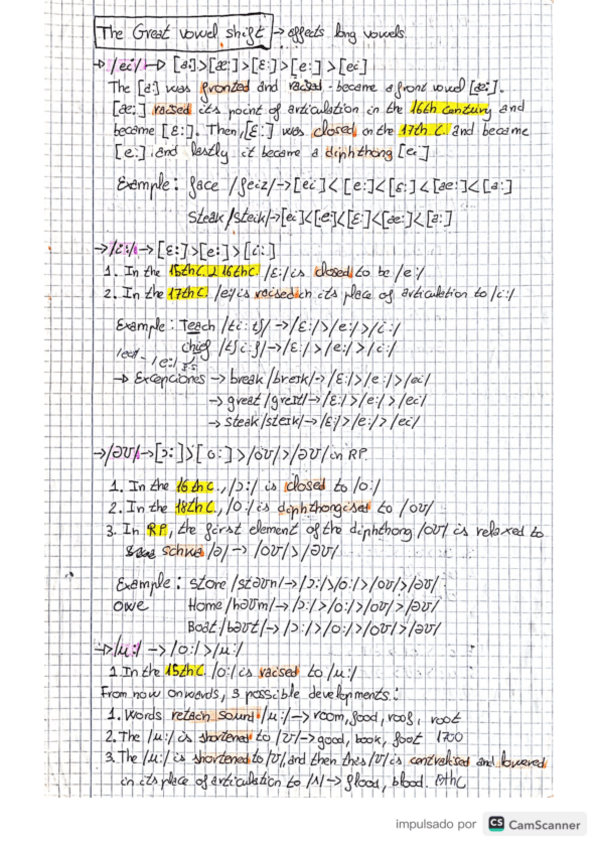 The Great vowel shift → affects long vowels.
→ /ei/ → [a:] > [æ:] > [ɛ:] > [e:] > [ei]
The [a:] was fronted and raised - became a front vowel [æ:].
[æ:] raised its point of articulation in the 16th century and
became [ɛ:]. Then, [ɛ:] was closed in the 17th C. and became
[e:] and lastly it became a diphthong [ei]
Example: face /feiz/ → [ei] < [e:] < [ɛ:] < [æ:] < [a:]
steak /steik/ → [ei] < [e:] < [ɛ:] < [æ:] < [a:]
→ /i:/ → [ɛ:] > [e:] > [i:]
1. In the 15th C. 16th C. /ɛ:/ is closed to be /e:/
2. In the 17th C. /e:/ is raised in its place of articulation to /i:/
Example: Teach /ti:tʃ/ → /ɛ:/ > /e:/ > /i:/
chief /tʃi:f/ → /ɛ:/ > /e:/ > /i:/
→ Excepciones → break /breik/ → /ɛ:/ > /e:/ > /ei/
→ great /greit/ → /ɛ:/ > /e:/ > /ei/
→ steak /steik/ → /ɛ:/ > /e:/ > /ei/
→ /əʊ/ → [ɔ:] > [o:] > /oʊ/ > /əʊ/ in RP.
1. In the 16th C., /ɔ:/ is closed to /o:/
2. In the 18th C., /o:/ is diphthongised to /oʊ/
3. In RP, the first element of the diphthong /oʊ/ is relaxed to
schwa /ə/ → /oʊ/ > /əʊ/
Example: stone /stəʊn/ → /ɔ:/ > /o:/ > /oʊ/ > /əʊ/
owe Home /həʊm/ → /ɔ:/ > /o:/ > /oʊ/ > /əʊ/
Boat /bəʊt/ → /ɔ:/ > /o:/ > /oʊ/ > /əʊ/
→ /u:/ → /o:/ > /u:/
1. In the 15th C. /o:/ is raised to /u:/
From now onwards, 3 possible developments:
1. Words retain sound /u:/ → room, food, roof, root
2. The /u:/ is shortened to /ʊ/ → good, book, foot 1700
3. The /u:/ is shortened to /ʊ/, and then this /ʊ/ is centralised and lowered
in its place of articulation to /ʌ/ → flood, blood.
impulsado por CS CamScanner